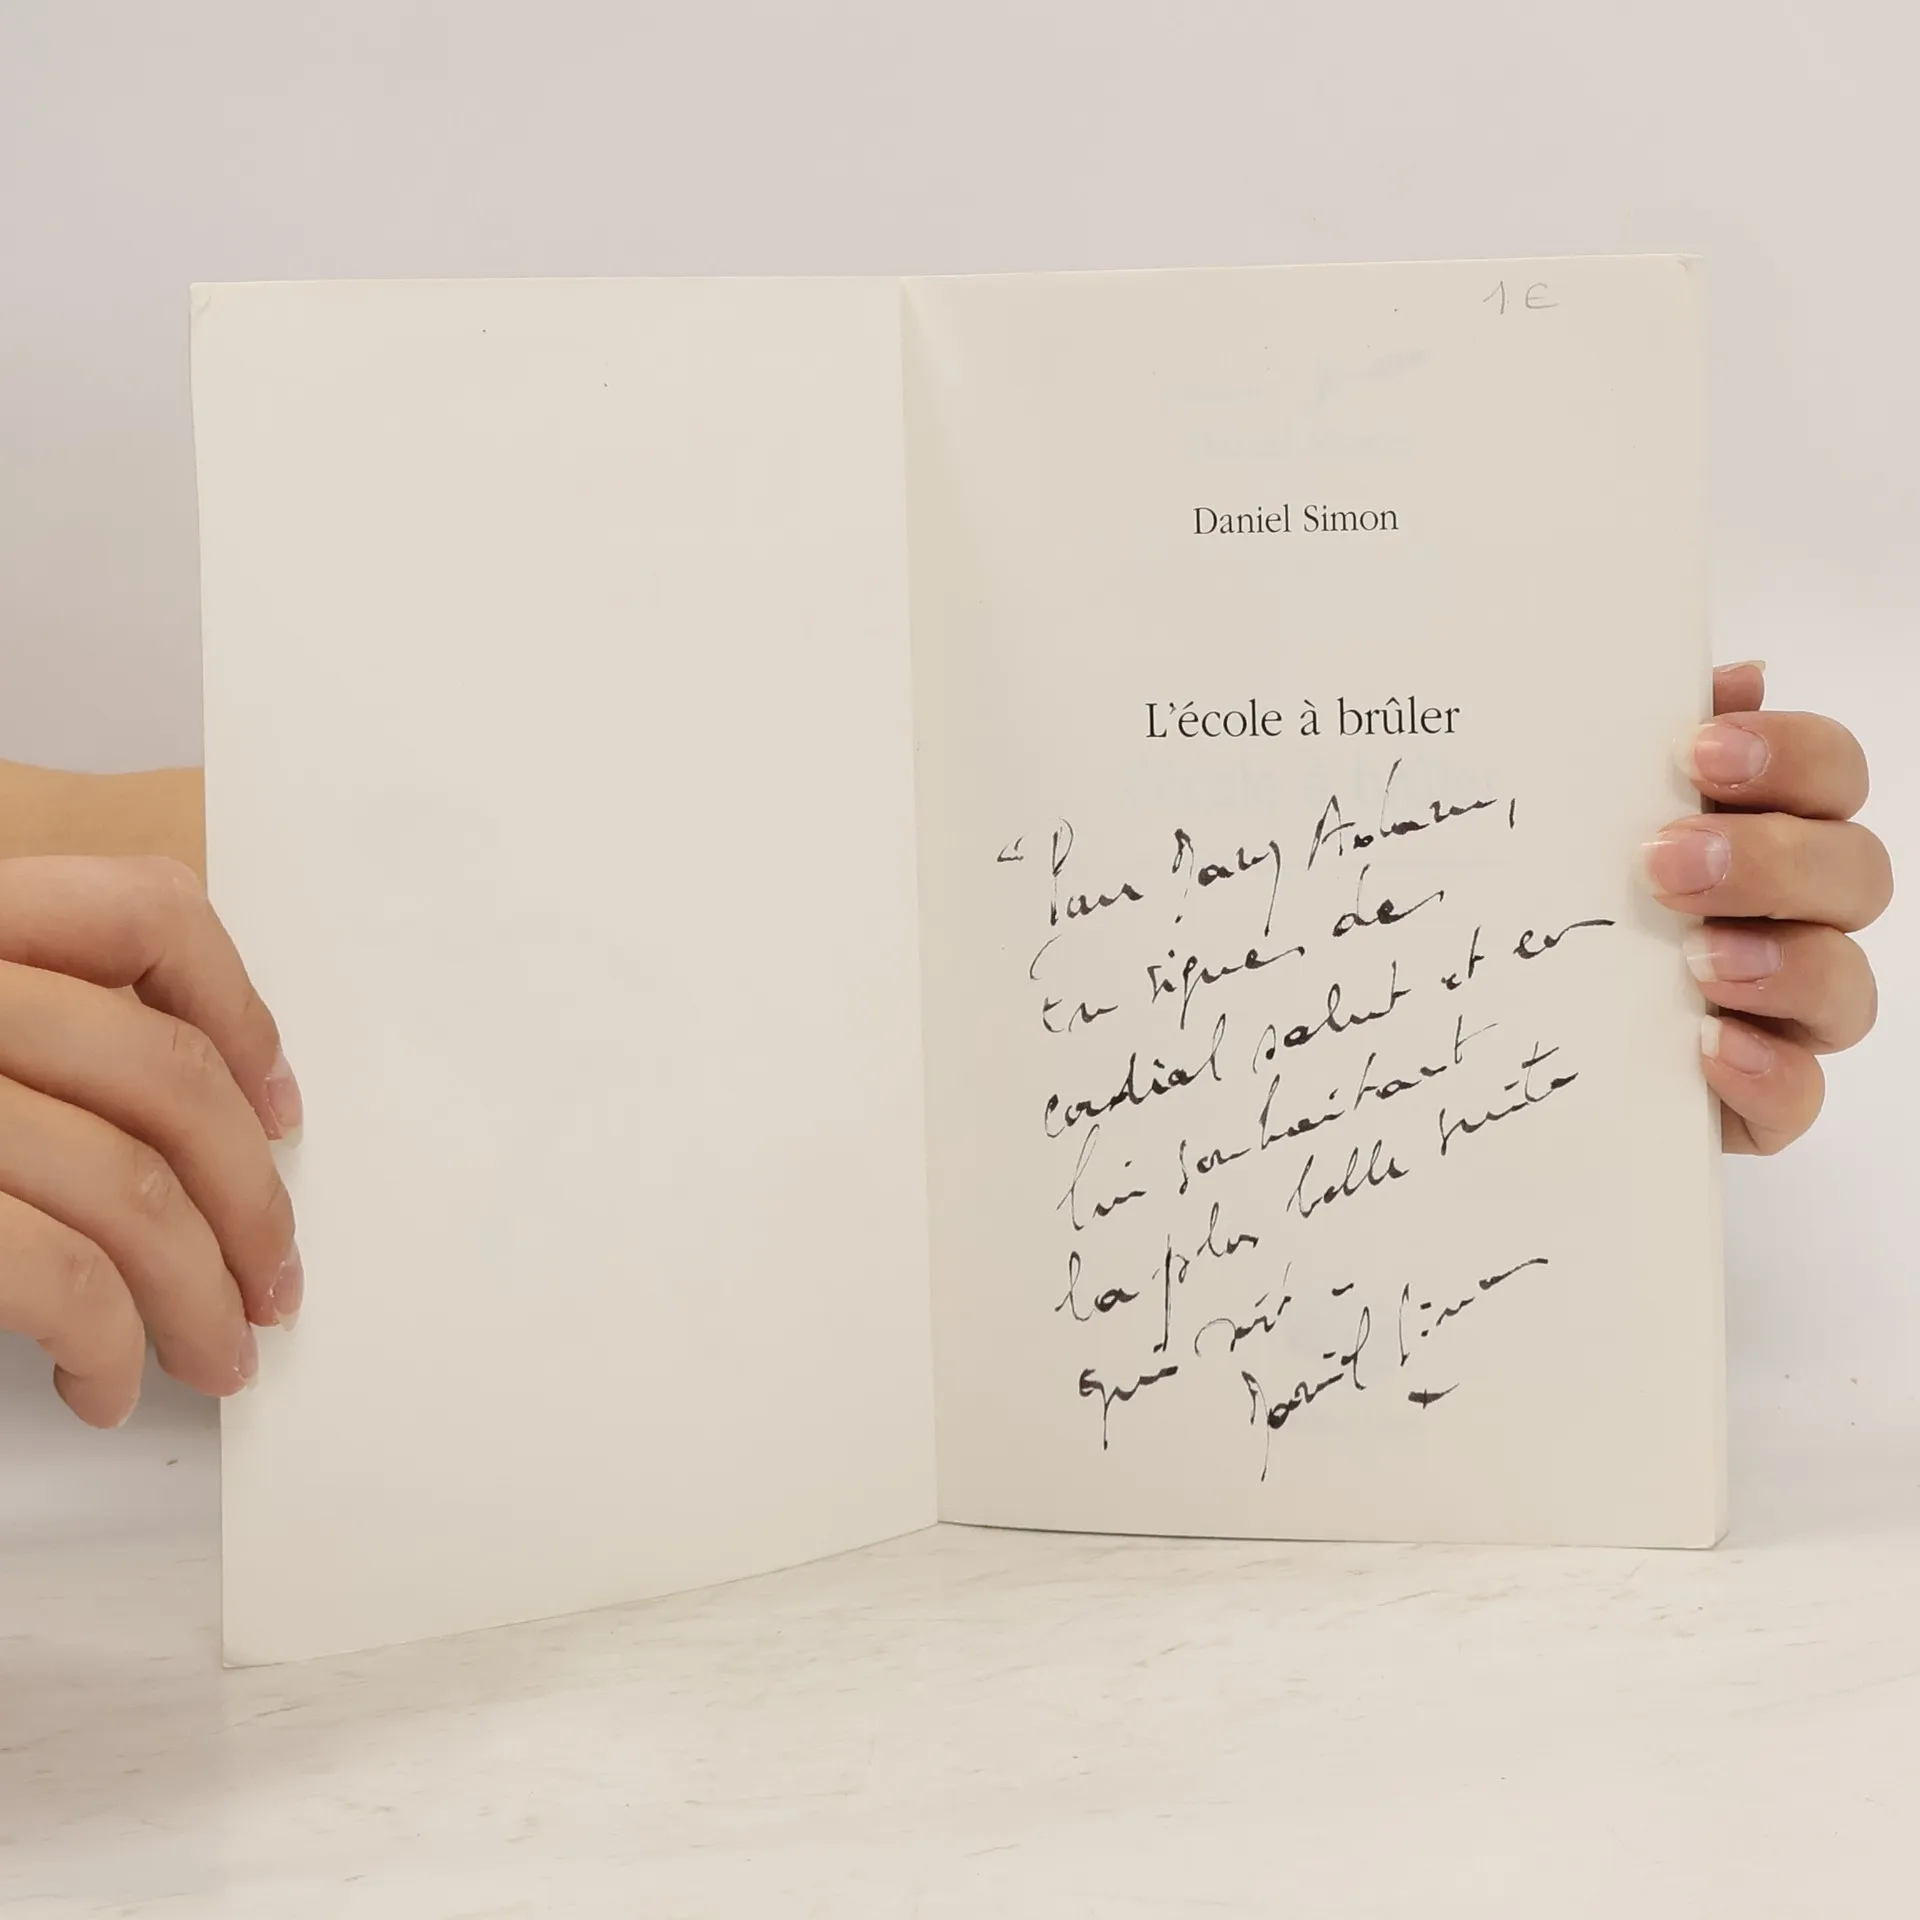 1 €
Daniel Simon
L'école à brûler
" Pour
En signes de
cordial salut et en
lui souhaitant
la plus belle suite
qui soit -
Daniel Simon